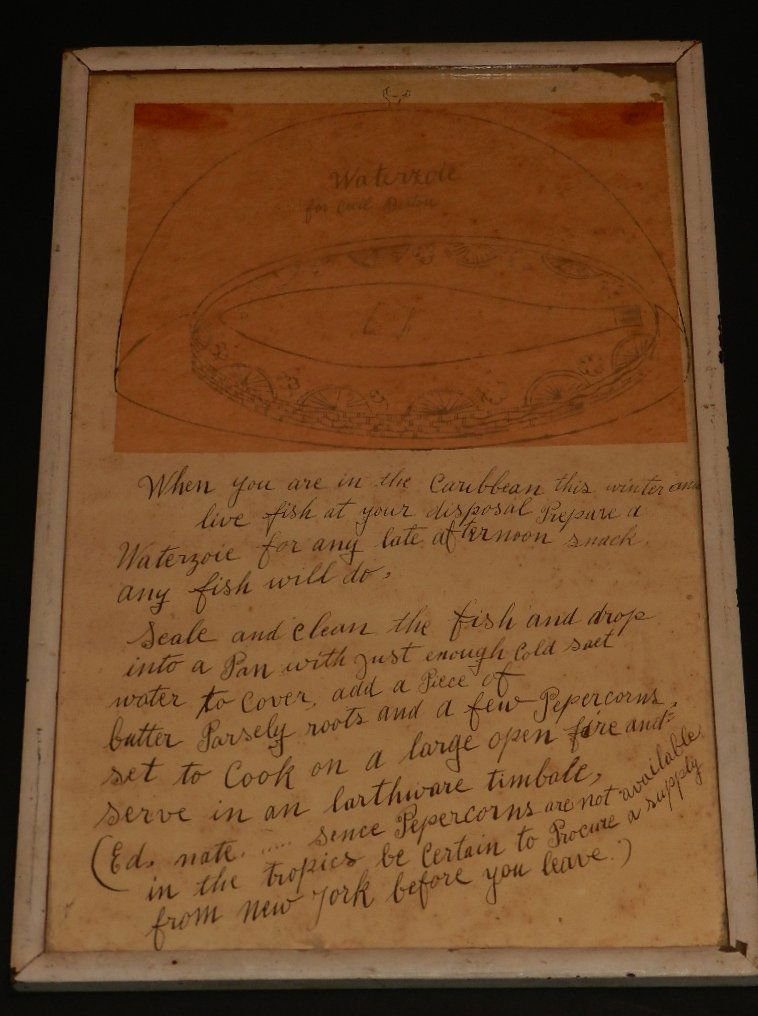 Waterzoie
for Cecil Beaton
When you are in the Caribbean this winter and
live fish at your disposal Prepare a
Waterzoie for any late afternoon snack.
any fish will do,
Scale and clean the fish and drop
into a Pan with just enough Cold salt
water to Cover, add a Piece of
butter Parsely roots and a few Pepercorns,
set to Cook on a large open fire and
serve in an Earthware timbale,
(Ed. note. ..... sence Pepercorns are not available
in the tropics be Certain to Procure a supply
from New York before you leave.)